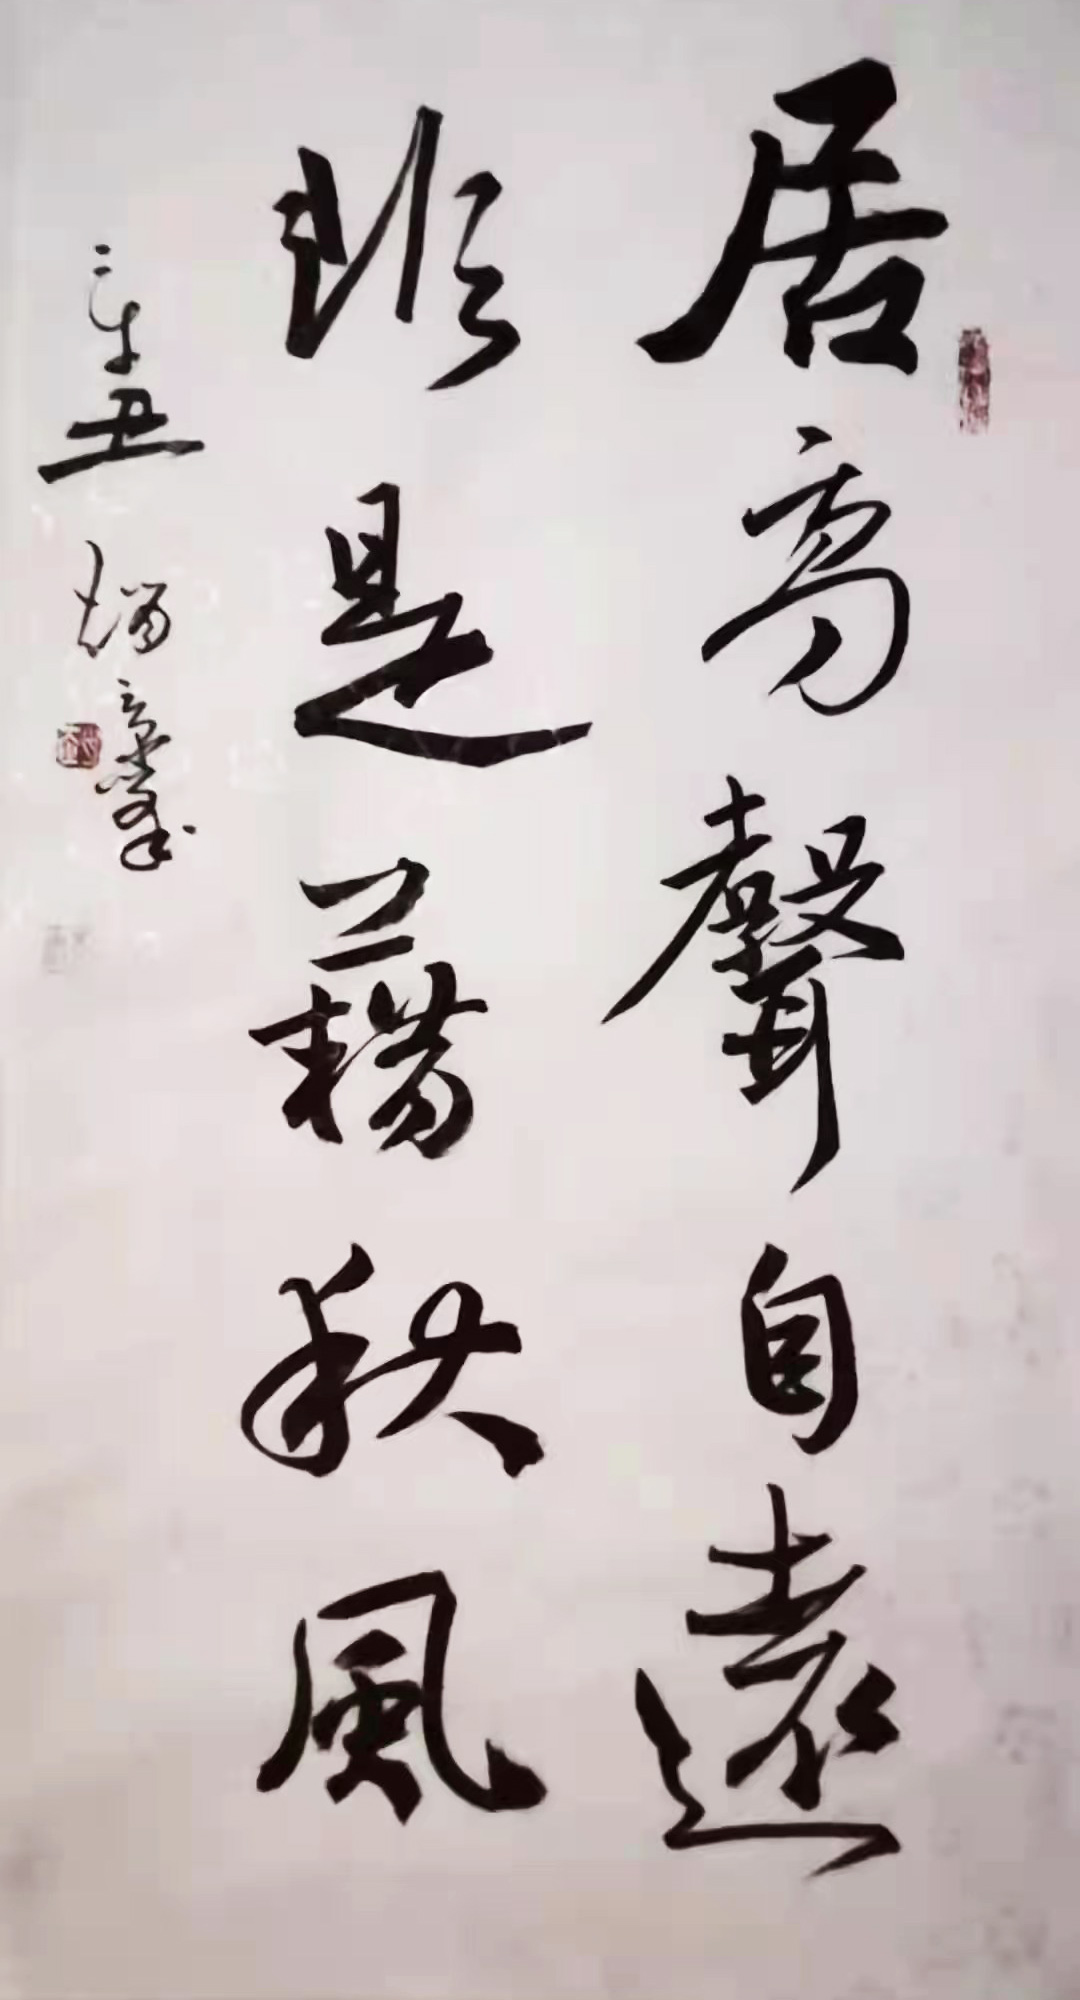 居高聲自遠
非是藉秋風
辛丑